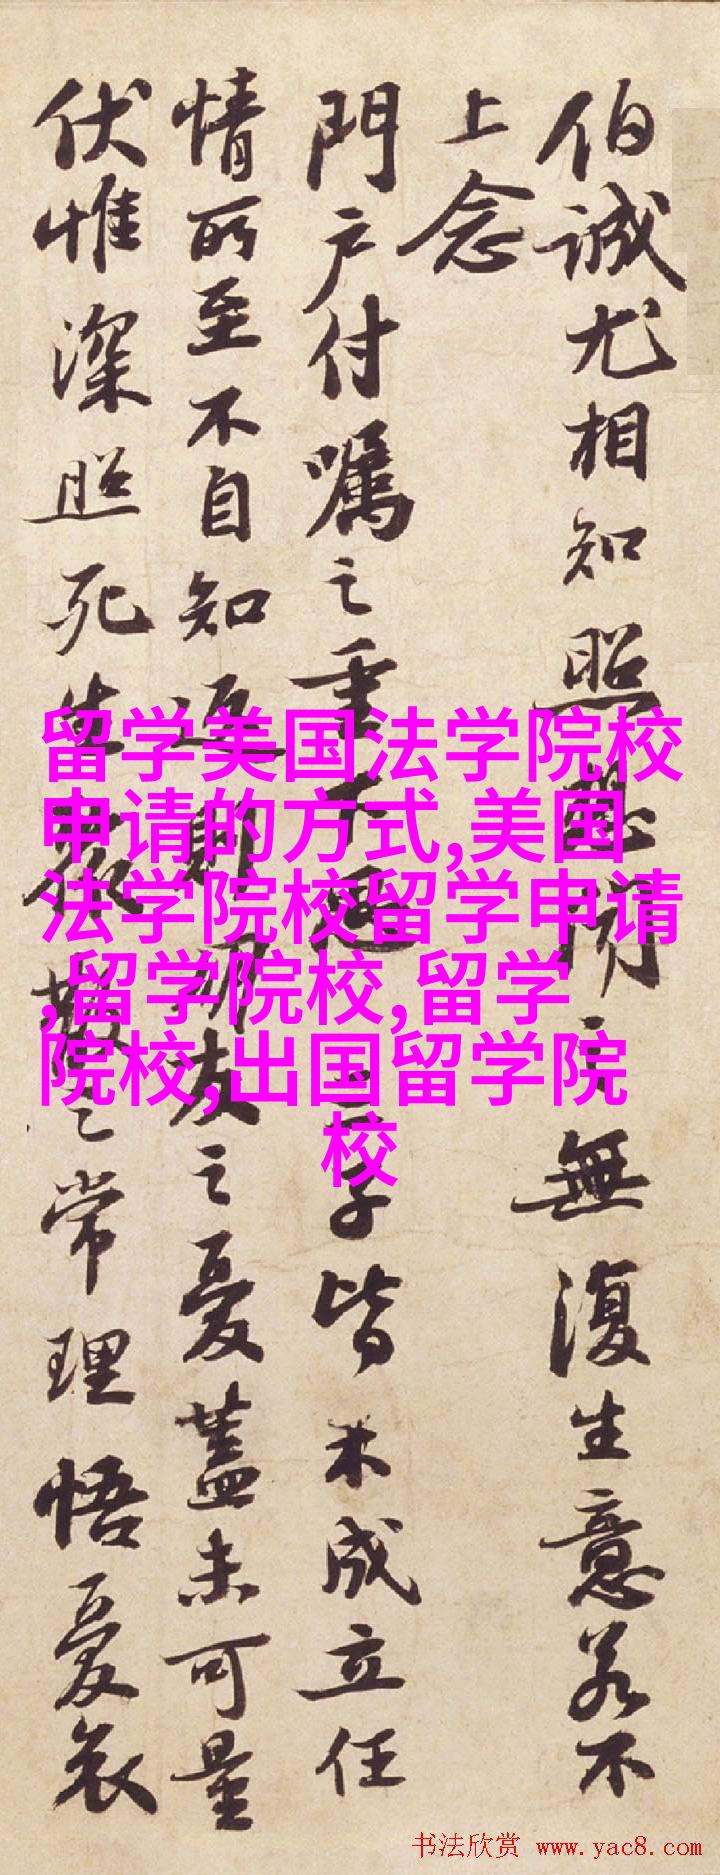 伯誠尤相知照想聞之無復生意若不
上念
門户付囑之重下三子皆未成立任
情所至不自知返則朋友之憂蓋未可量
伏惟深照死生聚散之常理悟憂哀
留学美国法学院校
申请的方式,美国
法学院校留学申请
,留学院校,留学
院校,出国留学院
校
书法欣赏 www.yac8.com